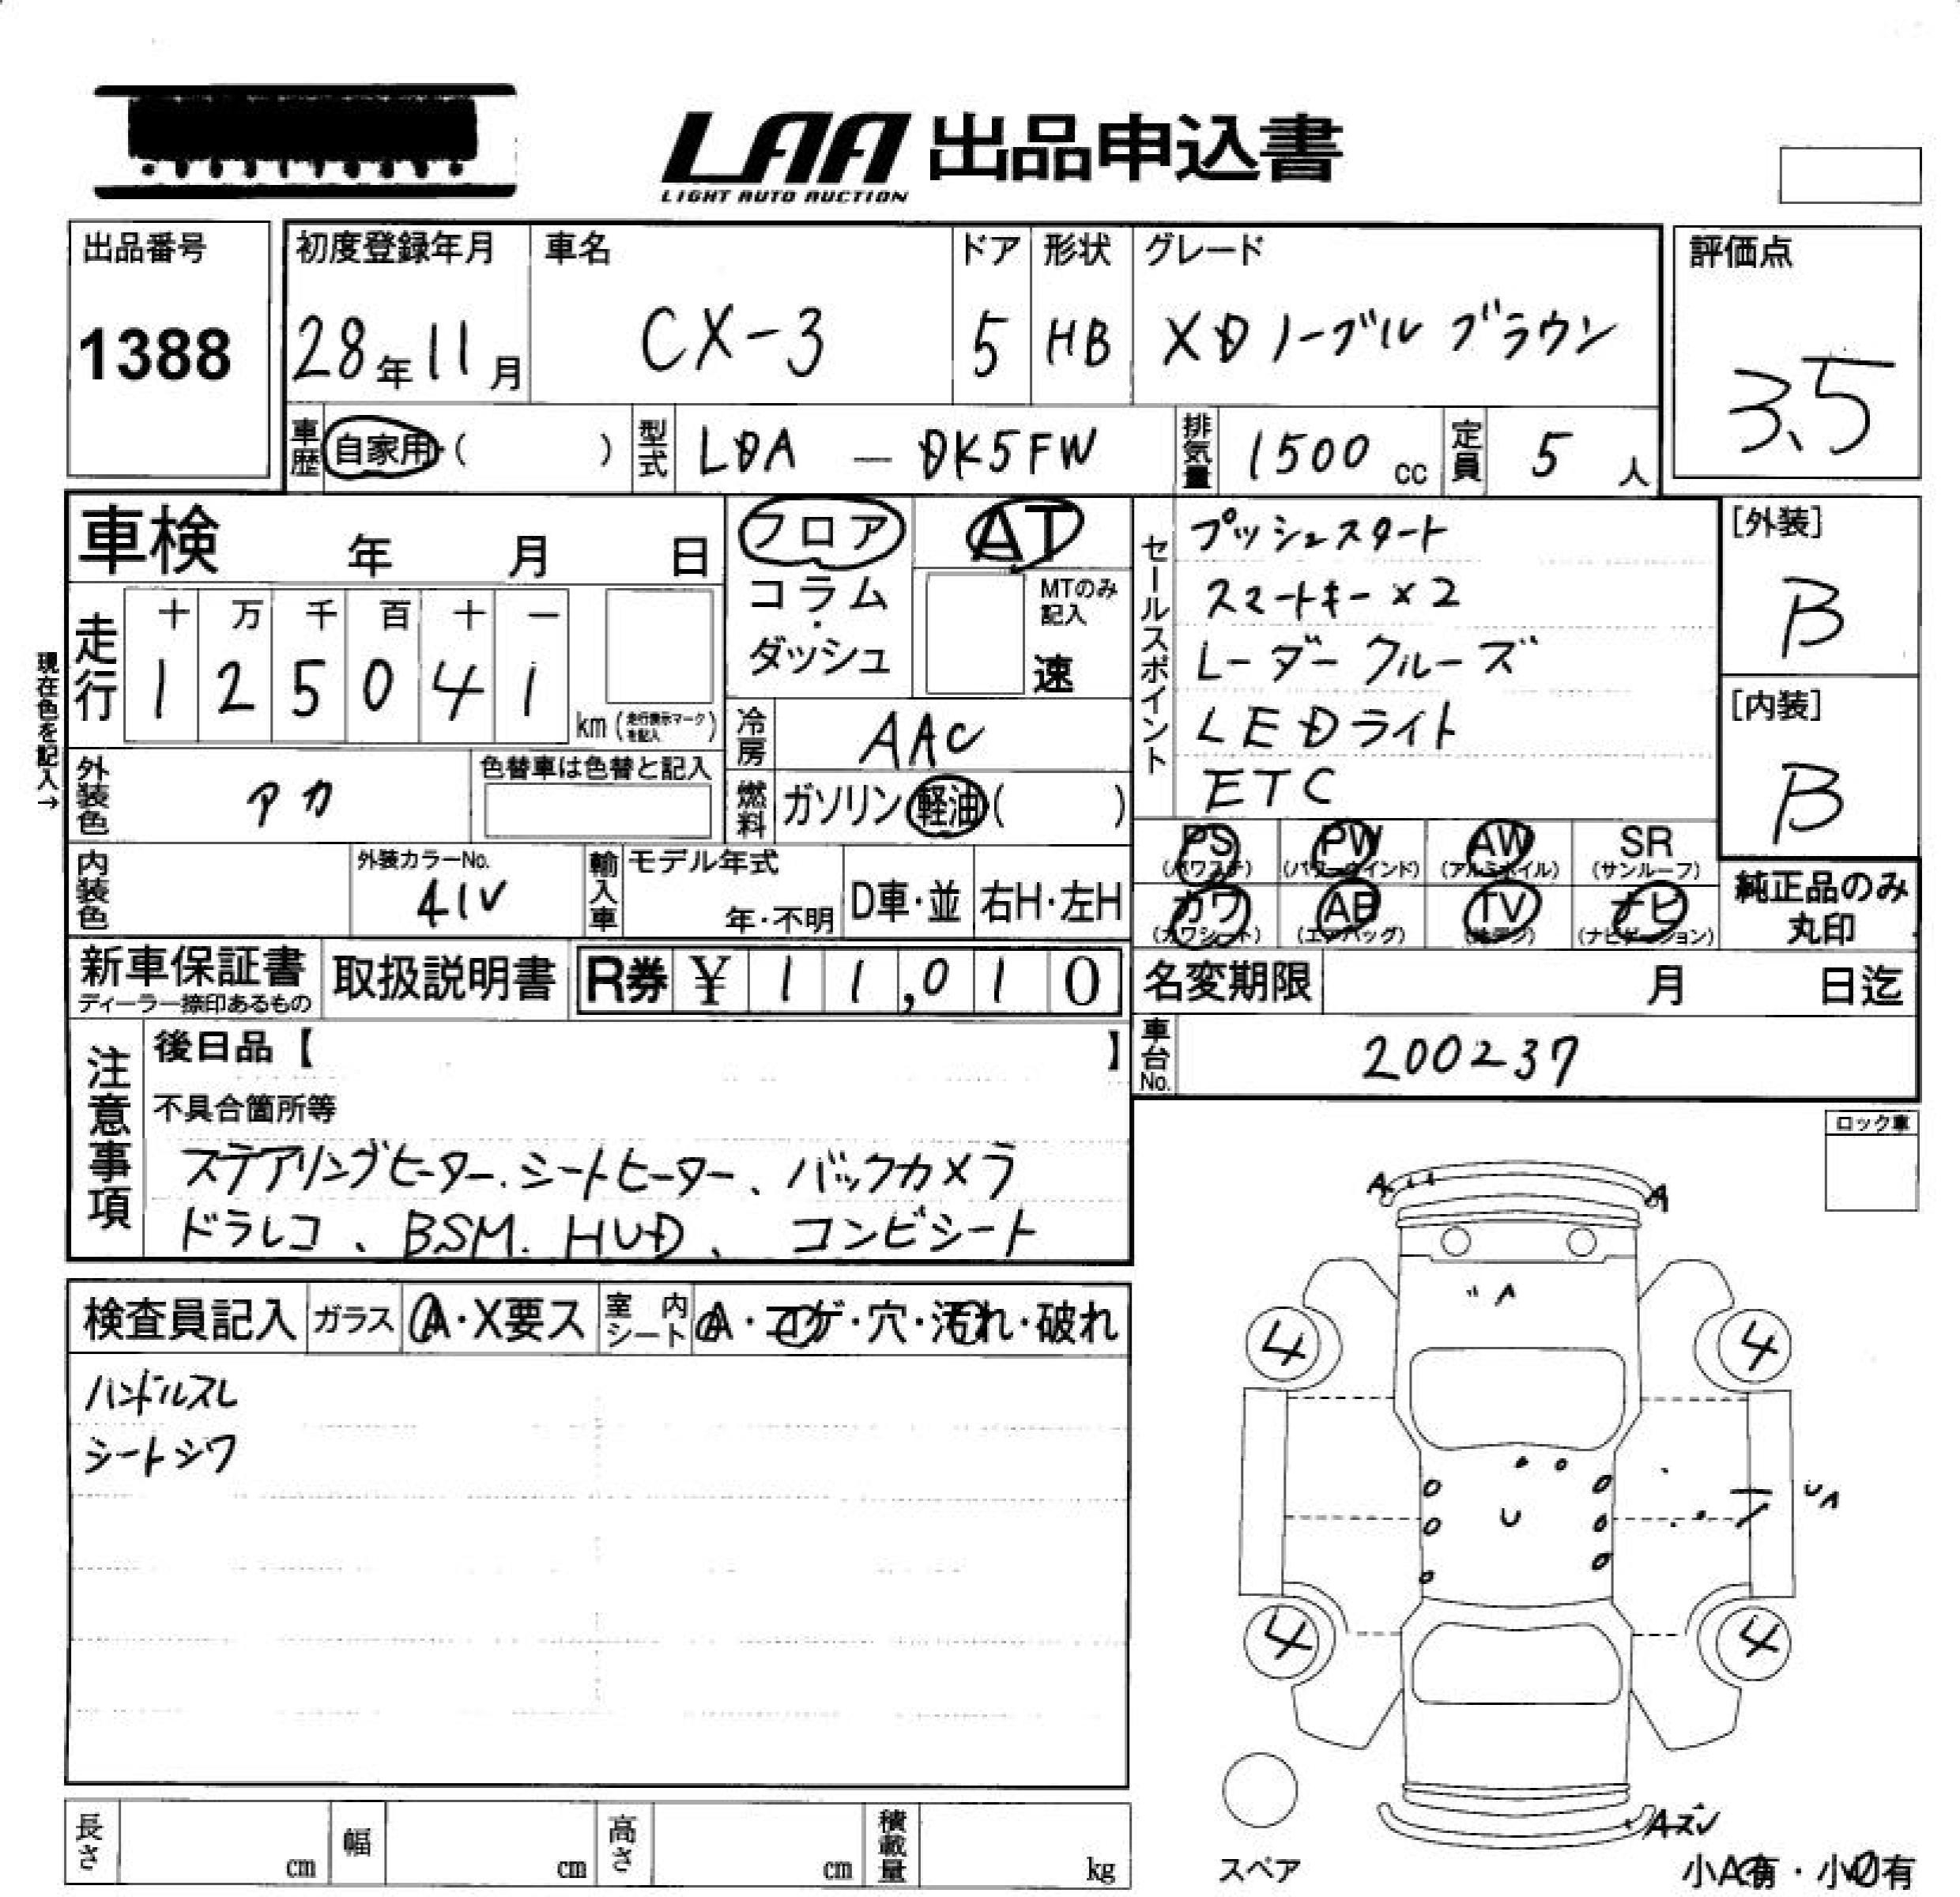 LAA 出品申込書
LIGHT AUTO AUCTION
出品番号
1388
初度登録年月
28年11月
車名
CX-3
ドア
5
形状
HB
グレード
XDノーブルブラウン
評価点
3.5
車歴 自家用・( )
型式 LDA — DK5FW
排気量 1500 cc
定員 5 人
車検 年 月 日
走行
十 万 千 百 十 一
1 2 5 0 4 1
km (走行表示マークを記入)
現在色を記入→
フロア
コラム
・
ダッシュ
AT
MTのみ記入
速
冷房 AAC
燃料 ガソリン 軽油( )
外装色 アカ
色替車は色替と記入
内装色
外装カラーNo.
41V
輸入車
モデル年式
年・不明
D車・並
右H・左H
セールスポイント
プッシュスタート
スマートキー×2
レーダークルーズ
LEDライト
ETC
[外装]
B
[内装]
B
PS (パワステ)
PW (パワーウインド)
AW (アルミホイル)
SR (サンルーフ)
カワ (カワシート)
AB (エアバッグ)
TV
ナビ (ナビゲーション)
純正品のみ
丸印
新車保証書
ディーラー捺印あるもの
取扱説明書
R券 ¥ 1 1,0 1 0
名変期限 月 日迄
車台No. 200237
注意事項
後日品【 】
不具合箇所等
ステアリングヒーター、シートヒーター、バックカメラ
ドラレコ、BSM、HUD、コンビシート
ロック車
検査員記入
ガラス A・X要ス
室内シート A・コゲ・穴・汚れ・破れ
ハンドルスレ
シートシワ
A
A
A
4
4
U
UA
4
4
スペア
小A有・小U有
長さ cm
幅 cm
高さ cm
積載量 kg